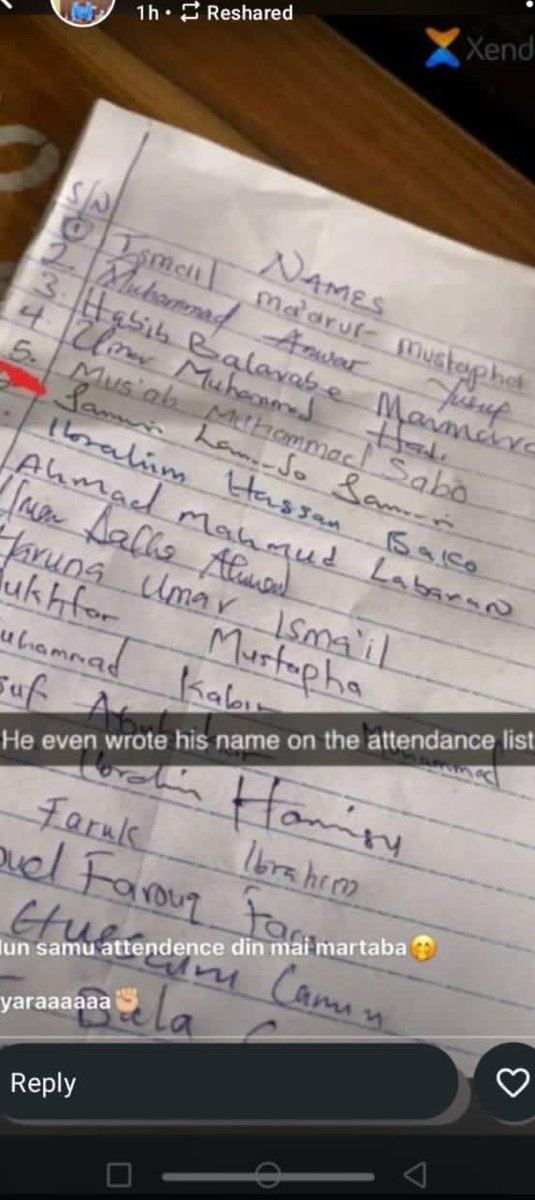 1h • Reshared
Xend
S/N NAMES
1 Ismail Ma'aruf Mustapha
2. Muhammad Anwar Yusuf
3. Habib Balarabe Marmara
4. Umar Muhammed Hadi
5. Mus'ab Muhammad Sabo
Samir Lamido Samir
Ibrahim Hassan Bako
Ahmad Mahmud Labaran
Ahmad
Haruna Umar Isma'il
Mustapha
uhammad Kabir Muhammad
suf
He even wrote his name on the attendance list
Faruk Ibrahim
Farouq
lun samu attendence din mai martaba🤭
yaraaaaaa✊🏼
Bala
Reply